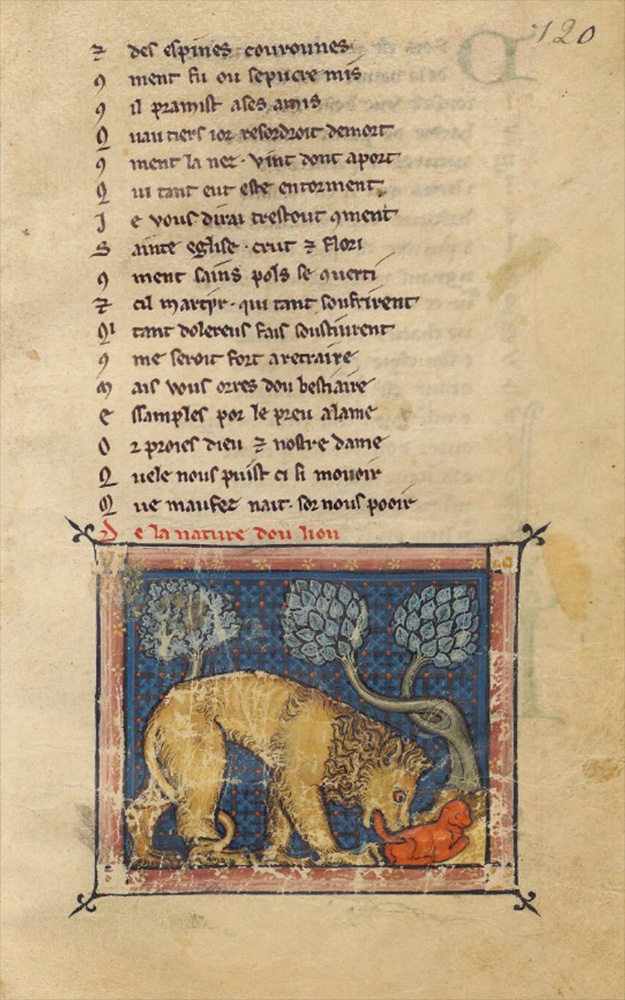 120
⁊ des espines couronnes
ꝯ ment fu ou sepucre mis
ꝯ il pramist a ses amis
Q uau tiers ior resordroit demort
ꝯ ment la nef · vint dont aport
Q ui tant eut este entorment
J e vous dirai trestout ꝯment
S ainte eglise · crut ⁊ flori
ꝯ ment sains pols se ꝯuerti
⁊ cil martyr · qui tant soufrirent
Qi tant dolereus fais soustinrent
ꝯ me seroit fort a retraire
M ais vous orres dou bestiaire
e ssamples por le preu a lame
O r proies dieu ⁊ nostre dame
Q uele nous puist ci si mouoir
Q ue maufez nait · sor nous pooir
D e la nature dou lion